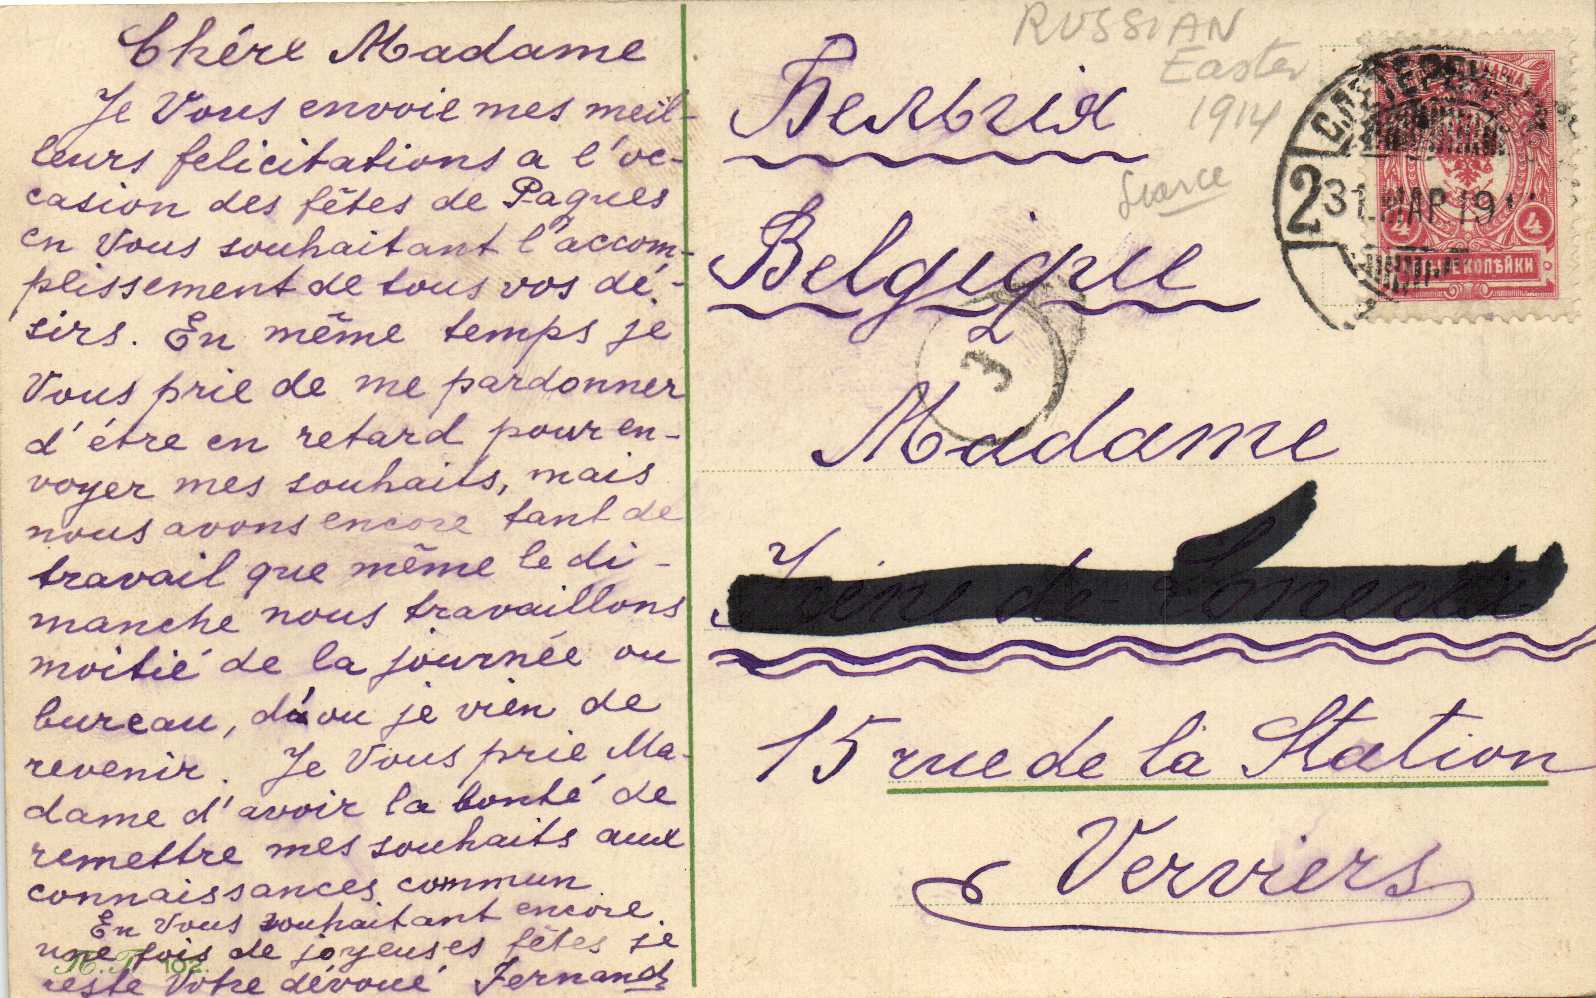 Chére Madame
Je Vous envoie mes meil-
leurs felicitations a l'oc-
casion des fêtes de Paques
en Vous souhaitant l'accom-
plissement de tous vos dé-
sirs. En même temps je
Vous prie de me pardonner
d'être en retard pour en-
voyer mes souhaits, mais
nous avons encore tant de
travail que même le di-
manche nous travaillons
moitié de la journée au
bureau, d'ou je vien de
revenir. Je Vous prie Ma-
dame d'avoir la bonté de
remettre mes souhaits aux
connaissances commun
En Vous souhaitant encore
une fois de joyeuses fêtes je
reste Votre dévoué Fernand
102.
RUSSIAN
Easter
1914
Scarce
Бельгія
Belgique
Madame
15 rue de la Station
Verviers
С.ПЕТЕРБ
2
31 МАР 19
МАРКА
4 4
КОПѢЙКИ
3